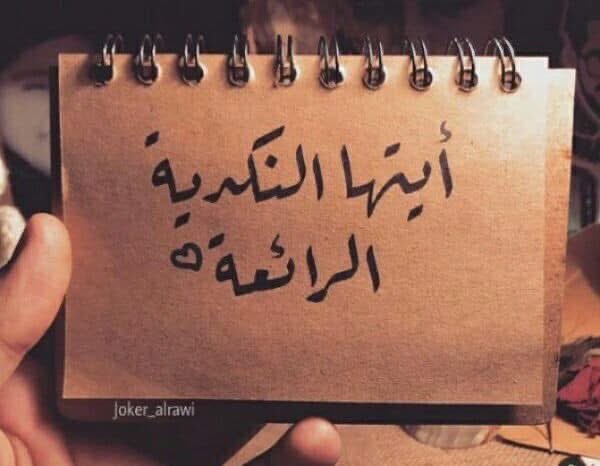 أيتها النكدية
الرائعة ♡
Joker_alrawi